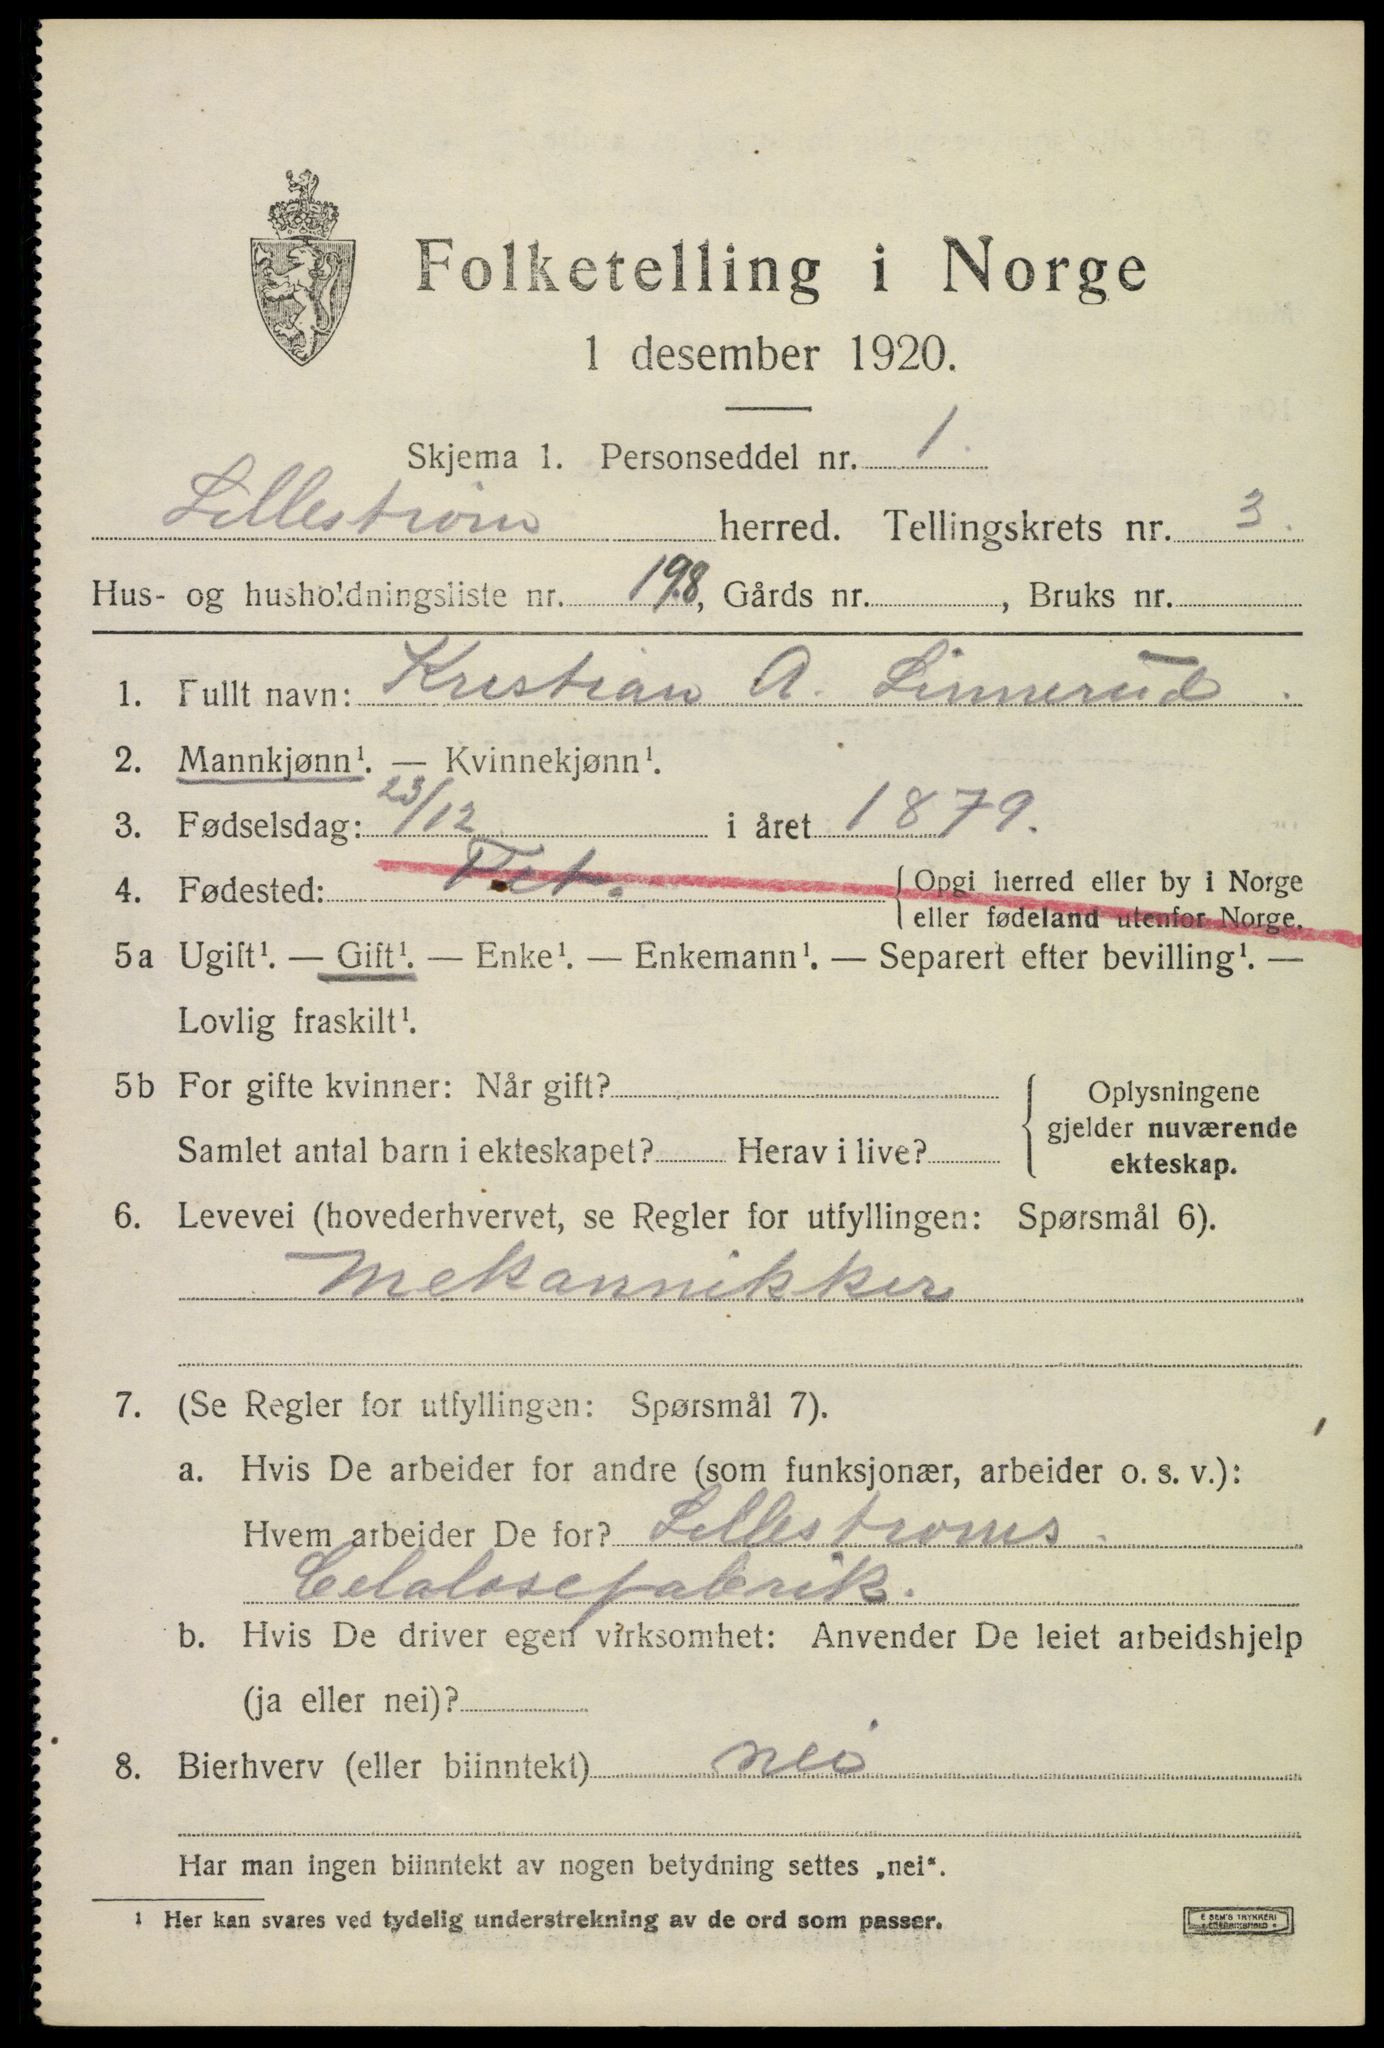 Folketelling i Norge
1 desember 1920.
Skjema 1. Personseddel nr. 1.
Lillestrøm herred. Tellingskrets nr. 3.
Hus- og husholdningsliste nr. 198, Gårds nr. , Bruks nr.
1. Fullt navn: Kristian A. Linnerud.
2. Mannkjønn¹. — Kvinnekjønn¹.
3. Fødselsdag: 23/12 i året 1879.
4. Fødested: Fet. {Opgi herred eller by i Norge
eller fødeland utenfor Norge.
5a Ugift¹. — Gift¹. — Enke¹. — Enkemann¹. — Separert efter bevilling¹. —
Lovlig fraskilt¹.
5b For gifte kvinner: Når gift? { Oplysningene
gjelder nuværende
Samlet antal barn i ekteskapet? Herav i live?
ekteskap.
6. Levevei (hovederhvervet, se Regler for utfyllingen: Spørsmål 6).
Mekannikker
7. (Se Regler for utfyllingen: Spørsmål 7).
a. Hvis De arbeider for andre (som funksjonær, arbeider o. s. v.):
Hvem arbeider De for? Lillestrøms
Celalosefabrik.
b. Hvis De driver egen virksomhet: Anvender De leiet arbeidshjelp
(ja eller nei)?
8. Bierhverv (eller biinntekt) nei
Har man ingen biinntekt av nogen betydning settes „nei“.
¹ Her kan svares ved tydelig understrekning av de ord som passer.
E SEM'S TRYKKERI
FREDRIKSHALD